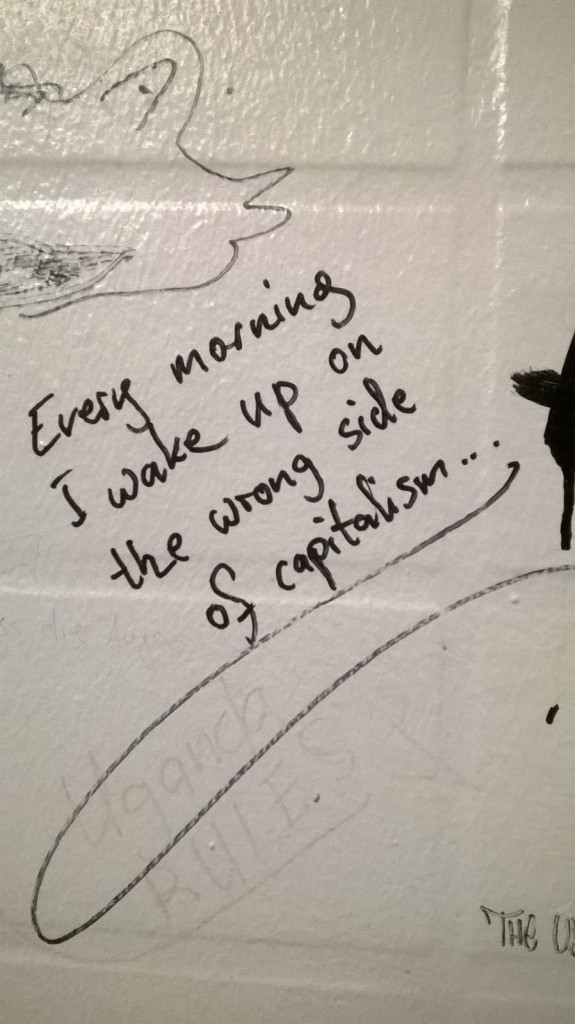 Every morning
I wake up on
the wrong side
of capitalism...
die Augen
Uganda
RULES
THE